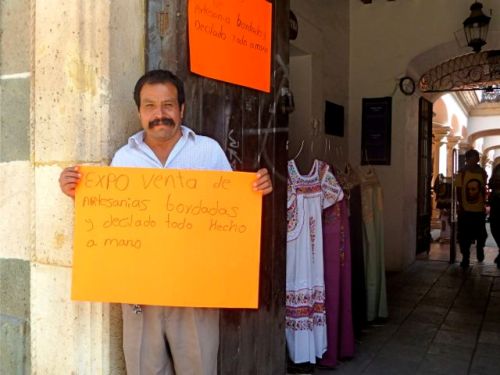 Artesania bordados y
Decilado todo a mano
EXPO Venta de
Artesanias bordadas
y decilado todo Hecho
a mano